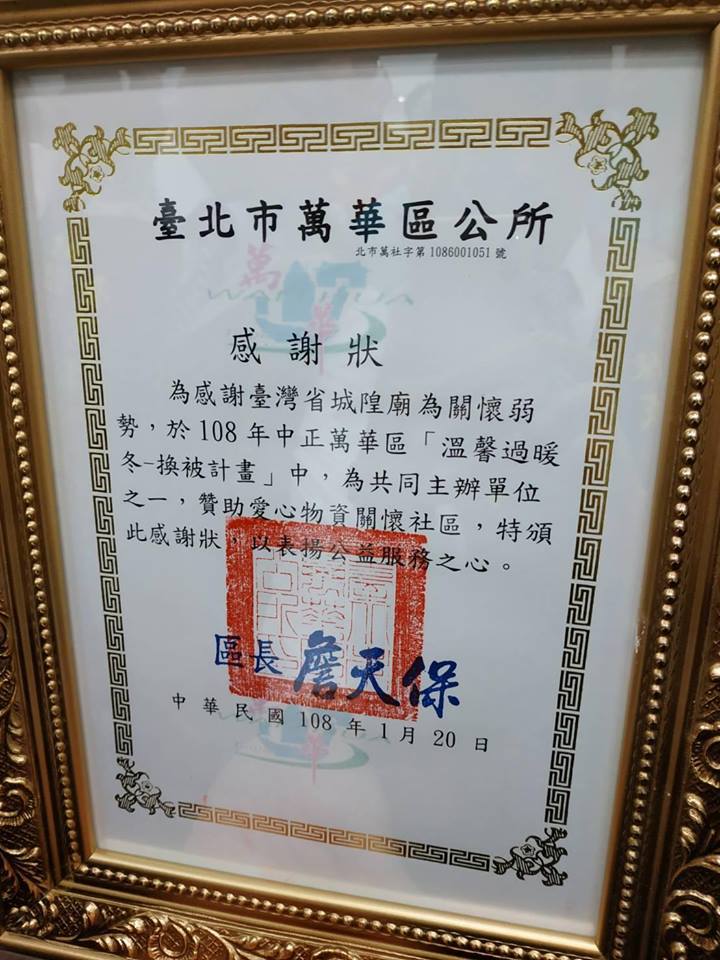 臺北市萬華區公所
北市萬社字第1086001051號
萬
華
感謝狀
為感謝臺灣省城隍廟為關懷弱
勢，於108年中正萬華區「溫馨過暖
冬-換被計畫」中，為共同主辦單位
之一，贊助愛心物資關懷社區，特頒
此感謝狀，以表揚公益服務之心。
區長 詹天保
中華民國108年1月20日